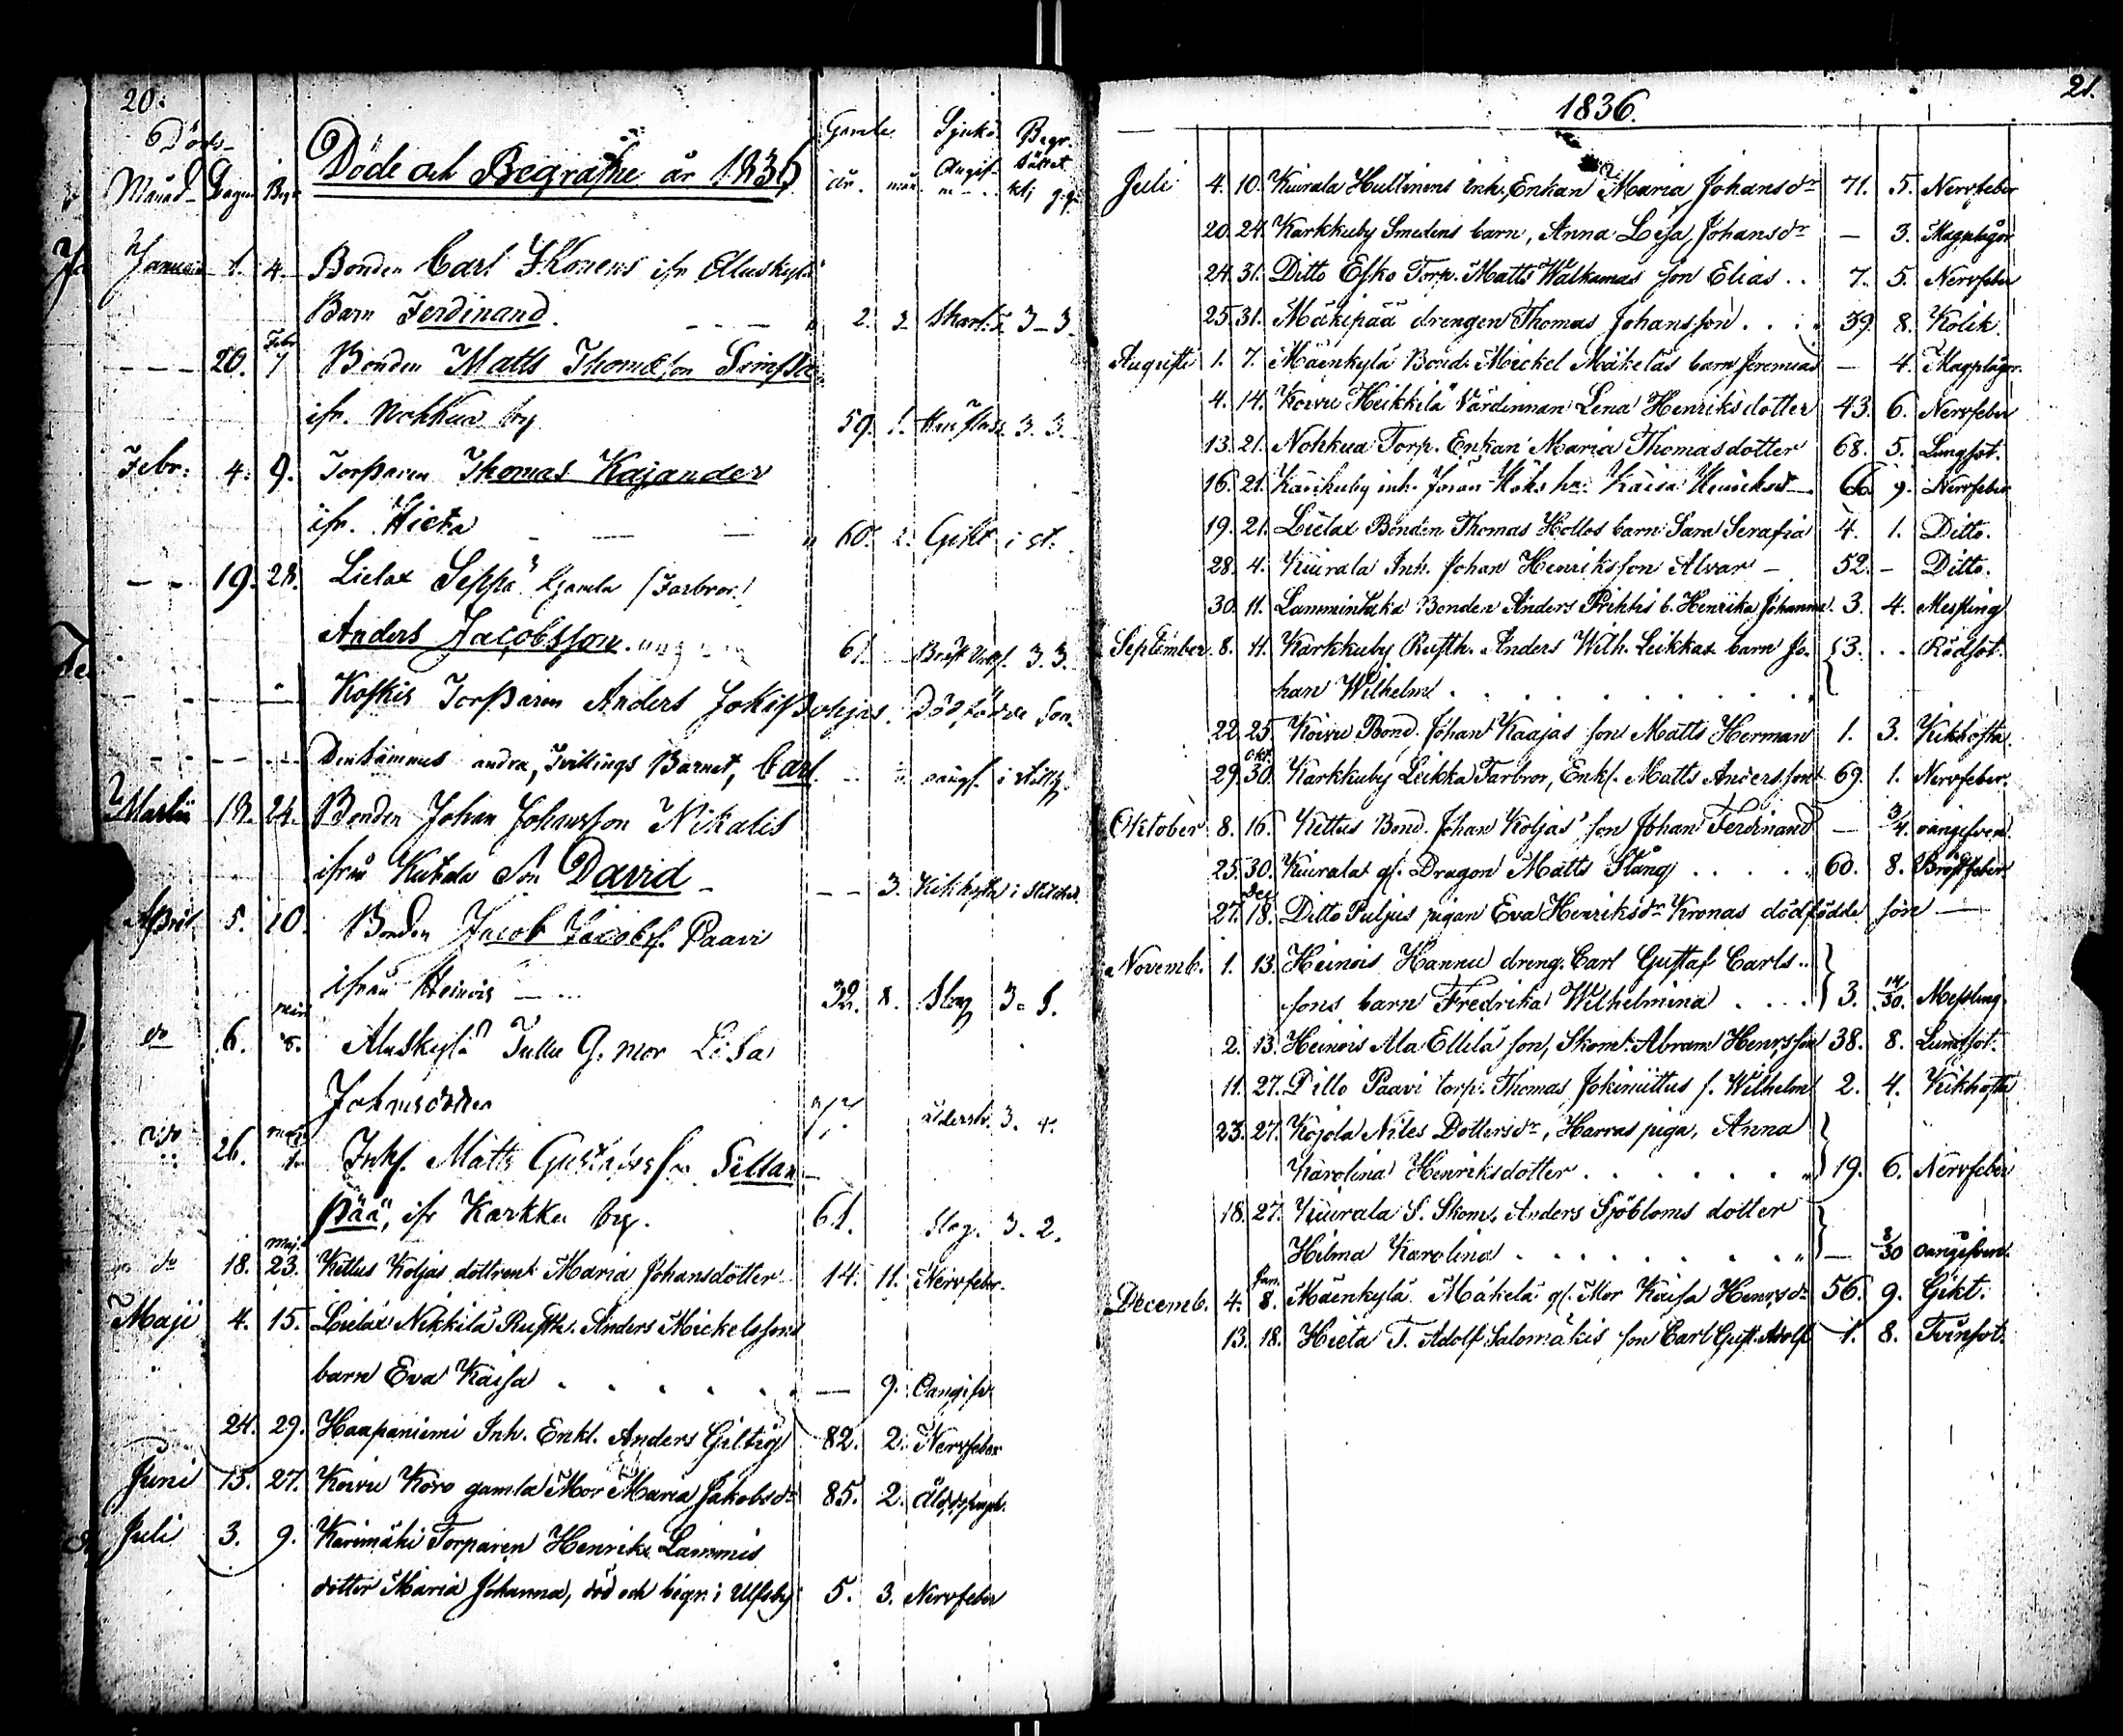 20.
Döds-
Månad Dagen Begr.
Döde och Begrafne år 1836
Gamle
år. mån.
Sjukd. Angif-
Begr.
Januari 1. 4. Bonden Carl Ikonens ifr Aluskylä
Barn Ferdinand. 2. 3. Skarl. 3-3.
20. Febr 7 Bonden Matts Thomasson Simssia
ifr. Nohkua by 59. 1. 3. 3.
Febr. 4. 9. Torparen Thomas Kajander
ifr. Hieta 60. 2. Gikt i st.
19. 28. Lielax Seppä Gamla Farbror
Anders Jacobsson. 61. Bröst 3. 3.
Koskis Torparen Anders Jokisspohjas. Dödfödde Son.
Densammes andra, Tvillings Barnet, Carl. oangf. i stillh.
Martii 13. 24. Bonden Johan Johansson Nikalis
ifrån Kutala Son David 3. Kikhosta i stillhet
April 5. 10. Bonden Jacob Jacobss. Paavi
ifrån Heinois 32. 8. Slag 3-1.
do 6. Aluskylä Tullu G. mor Lisa
Johansdotter ålderd. 3. 4.
do 26. maji 1. Inhs. Matts Gustafsson Sillan-
pää, ifr Karkku by. 61. Slag. 3. 2.
do 18. maji 23. Kettus Koljas dottren Maria Johansdotter 14. 11. Nervfeber.
Maji 4. 15. Lielax Nikkilä Rusth. Anders Mickelssons
barn Eva Kaisa — 9. Oangifv.
24. 29. Haapaniemi Inh. Enkl. Anders Giltig 82. 2. Nervfeber
Juni 15. 27. Koivu Koro gamla Mor Maria Jakobsdr 85. 2.
Juli 3. 9. Karimäki Torparen Henrik Lammis
dotter Maria Johanna, död och begr. i Ulfsby 5. 3. Nervfeber
21.
1836.
Juli 4. 10. Kiurala Hultinens inh. Enkan Maria Johansdr 71. 5. Nervfeber
20. 24. Karkkuby Smedens barn, Anna Lisa Johansdr — 3. Magplågor
24. 31. Ditto Esko Torp. Matts Walkamas son Elias .. 7. 5. Nervfeber
25. 31. Mäkipää drengen Thomas Johansson .... 39. 8. Kolik.
Augusti 1. 7. Mäenkylä Bond. Mickel Mäkeläs barn Jeremias — 4. Magplågor.
4. 14. Koivu Heikkilä Värdinnan Lena Henriksdotter 43. 6. Nervfeber
13. 21. Nohkua Torp. Enkan Maria Thomasdotter 68. 5. Lungsot.
16. 21. Karkuby inh. Johan Höks hu. Kaisa Henriksd. 66. 9. Nervfeber
19. 21. Lielax Bonden Thomas Hollos barn Sara Serafia 4. 1. Ditto.
28. 4. Kiurala Inh. Johan Henriksson Alvar — 52. - Ditto.
30. 11. Lammintaka Bonden Anders Prihtis b. Henrika Johanna. 3. 4. Messling
September 8. 11. Karkkuby Rusth. Anders Wilh. Leikkas barn Jo- 3. .. Rödsot.
han Wilhelm
22. 25. Koivu Bond. Johan Kaajas son Matts Herman 1. 3. Kikhosta.
29. Okt. 30. Karkkuby Leikka Farbror, Enkl. Matts Andersson 69. 1. Nervfeber.
Oktober 8. 16. Kettus Bond. Johan Koljas son Johan Ferdinand — 3/4. oangifven.
25. 30. Kiurala gl. Dragon Matts Stång .... 60. 8. Bröstfeber
27. Dec 18. Ditto Puljus pigan Eva Henriksdr Kronas dödfödde son —
Novemb. 1. 13. Heinois Hannu dreng. Carl Gustaf Carls-
sons barn Fredrika Wilhelmina .... 3. 14/30. Messling
2. 13. Heinois Ala Ellilä son, Skom. Abram Henrsson 38. 8. Lungsot.
11. 27. Ditto Paavi torp. Thomas Jokiniittus s. Wilhelm 2. 4. Kikhosta
23. 27. Kojola Niles Dottersdr, Harras piga, Anna
Karolina Henriksdotter 19. 6. Nervfeber
18. 27. Kiurala S. Skom. Anders Sjöbloms dotter
Hilma Karolina — 3/30 oangifven.
Decemb. 4. Jan. 8. Mäenkylä Mäkelä gl. Mor Kaisa Henrsdr 56. 9. Gikt.
13. 18. Hieta T. Adolf Salomäkis son Carl Gust. Adolf 1. 8. Tvinsot.